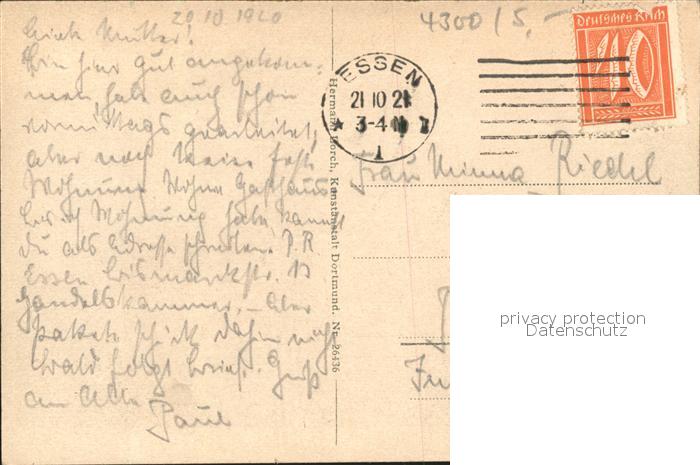 20 10 1920
4300 / 5,–
Deutsches Reich
40
ESSEN
21 10 21
3-4 N
1
Liebe Mutter!
Bin hier gut angekom-
men, habe auch schon
vormittags gearbeitet,
aber noch keine feste
Wohnung. Wohne Gasthaus
bis ich Wohnung habe, kannst
du als Adresse schreiben P. R
Essen Bismarckstr. 13
Handelskammer. – Aber
Pakete schick dahin nicht
Bald folgt Brief. Gruß
an Alle
Paul
Hermann Lorch, Kunstanstalt Dortmund. Nr. 26436
Frau Minna Riedel
privacy protection
Datenschutz